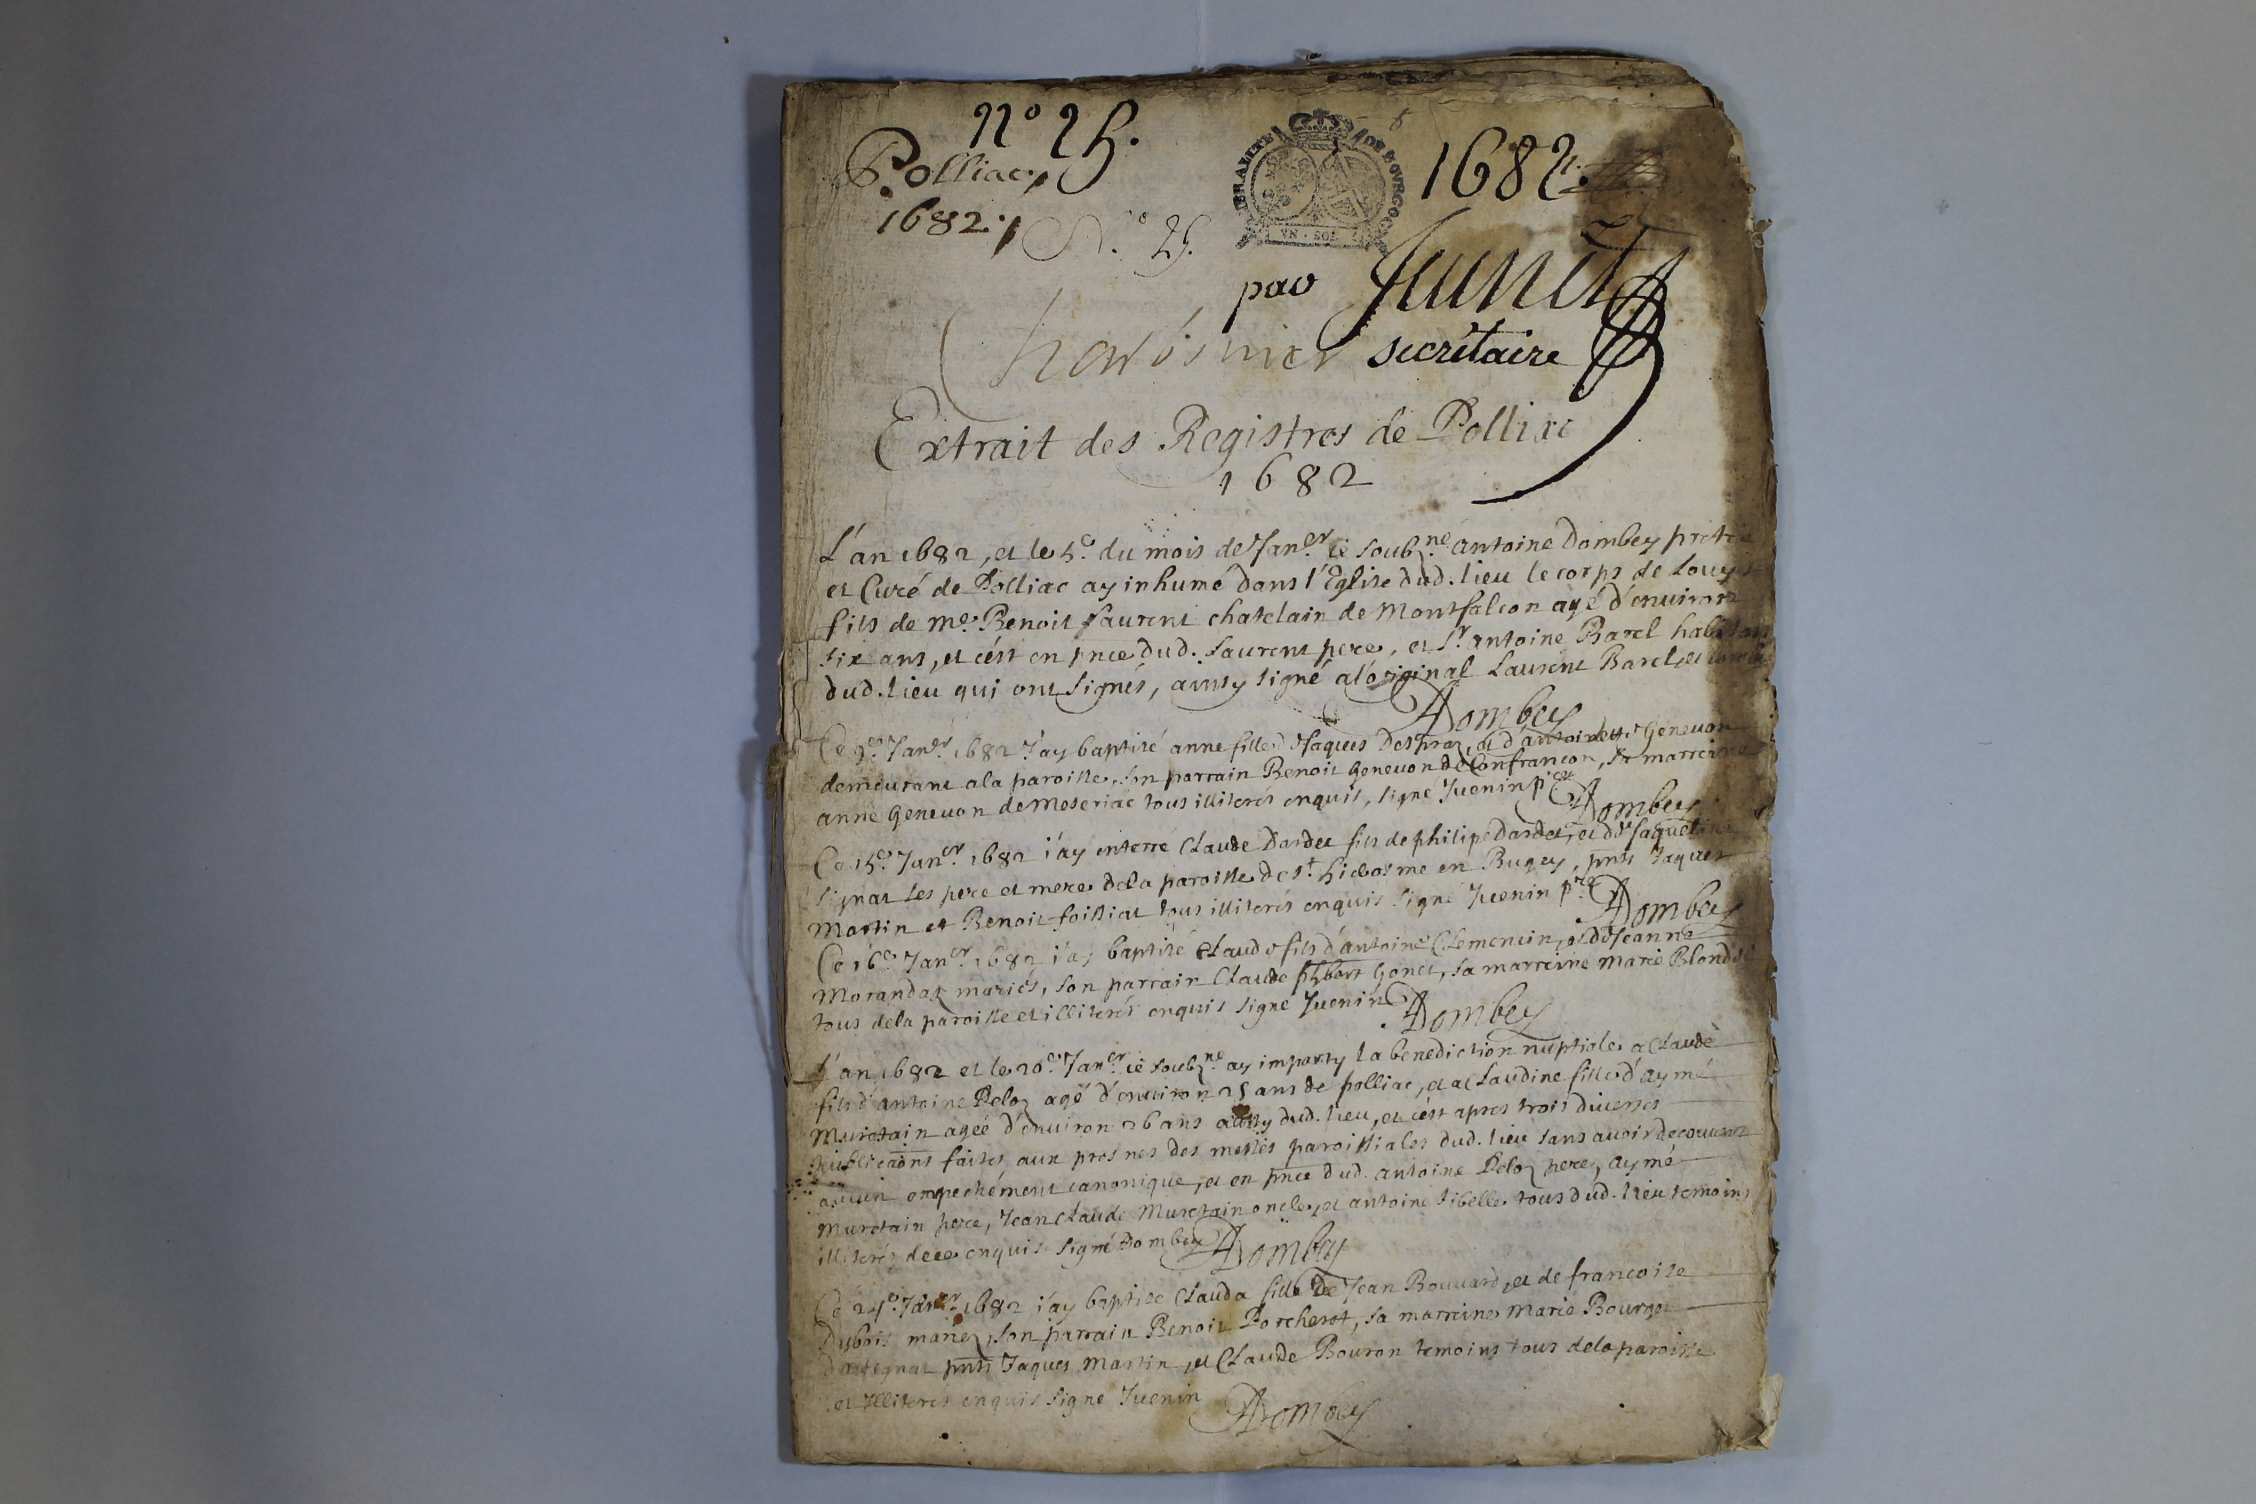 N° 25.
Polliac,
1682.
N.° 25.
GENERALITE DE BOVRGOGNE
VN · SOL
1682.
par Juenin
secrétaire
Extrait des Registres de Polliac
1682
L'an 1682, et le 5e. du mois de Janer. ie soubzné. Antoine Dombey prétre
et Curé de Polliac ay inhumé dans l'Eglise dud. lieu le corps de Louys
fils de me. Benoit Laurent chatelain de Montfalcon agé d'environ
six ans, et cést en pnce dud. Laurent pere, et Sr. antoine Barel habitans
dud. lieu qui ont signés, aussy signé a l'original Laurent Barel, et
Dombey
Ce 9e. Janer. 1682 j'ay baptisé anne fille de Jaques Despraz, et d'antoinette Geneuon
demeurant a la paroisse, son parrain Benoit Geneuon de Confrancon, sa marreine
anne Geneuon de Meseriac tous illiterés enquis, signé Juenin ptre
Dombey
Ce 15e. Janer. 1682 i'ay enterré Claude Dardet fils de philipe Dardet, et de Jaqueline
signat ses pere et mere de la paroisse de St. hierosme en Bugey, pnts Jaques
Martin et Benoit foissiat tous illiterés enquis signé Juenin ptre
Dombey
Ce 16e. Janer. 1682 i'ay baptisé Claude fils d'antoine Clemencin, et de Jeanne
Morandaz mariés, son parrain Claude phbert Gonet, sa marreine Marie Blondel
tous de la paroisse et illiterés enquis signé Juenin Dombey
L'an 1682 et le 20e. Janer. ie soubzné. ay imparty la benediction nuptiale a Claude
fils d'antoine Peloz agé d'environ 25 ans de polliac, et a Claudine fille d'aymé
Muretain agée d'environ 26 ans aussy dud. lieu, et cést apres trois diuerses
publicaõns faites aux prosnes des messes paroissiales dud. lieu sans auoir decouuert
aucun empechément canonique, et en pnce dud. antoine Peloz pere, aymé
Muretain pere, Jean Claude Muretain oncle, et antoine Tibelle tous dud. lieu temoins
illiterés de ce enquis signé Dombey Dombey
Ce 24e. Janer. 1682 i'ay baptisé Clauda fille de Jean Bouuard, et de francoise
Dubois mariez, son parrain Benoit Porcherot, sa marreine Marie Bourget
pnts Jaques Martin, et Claude Bouron temoins tous de la paroisse
et Illiterés enquis signé Juenin Dombey